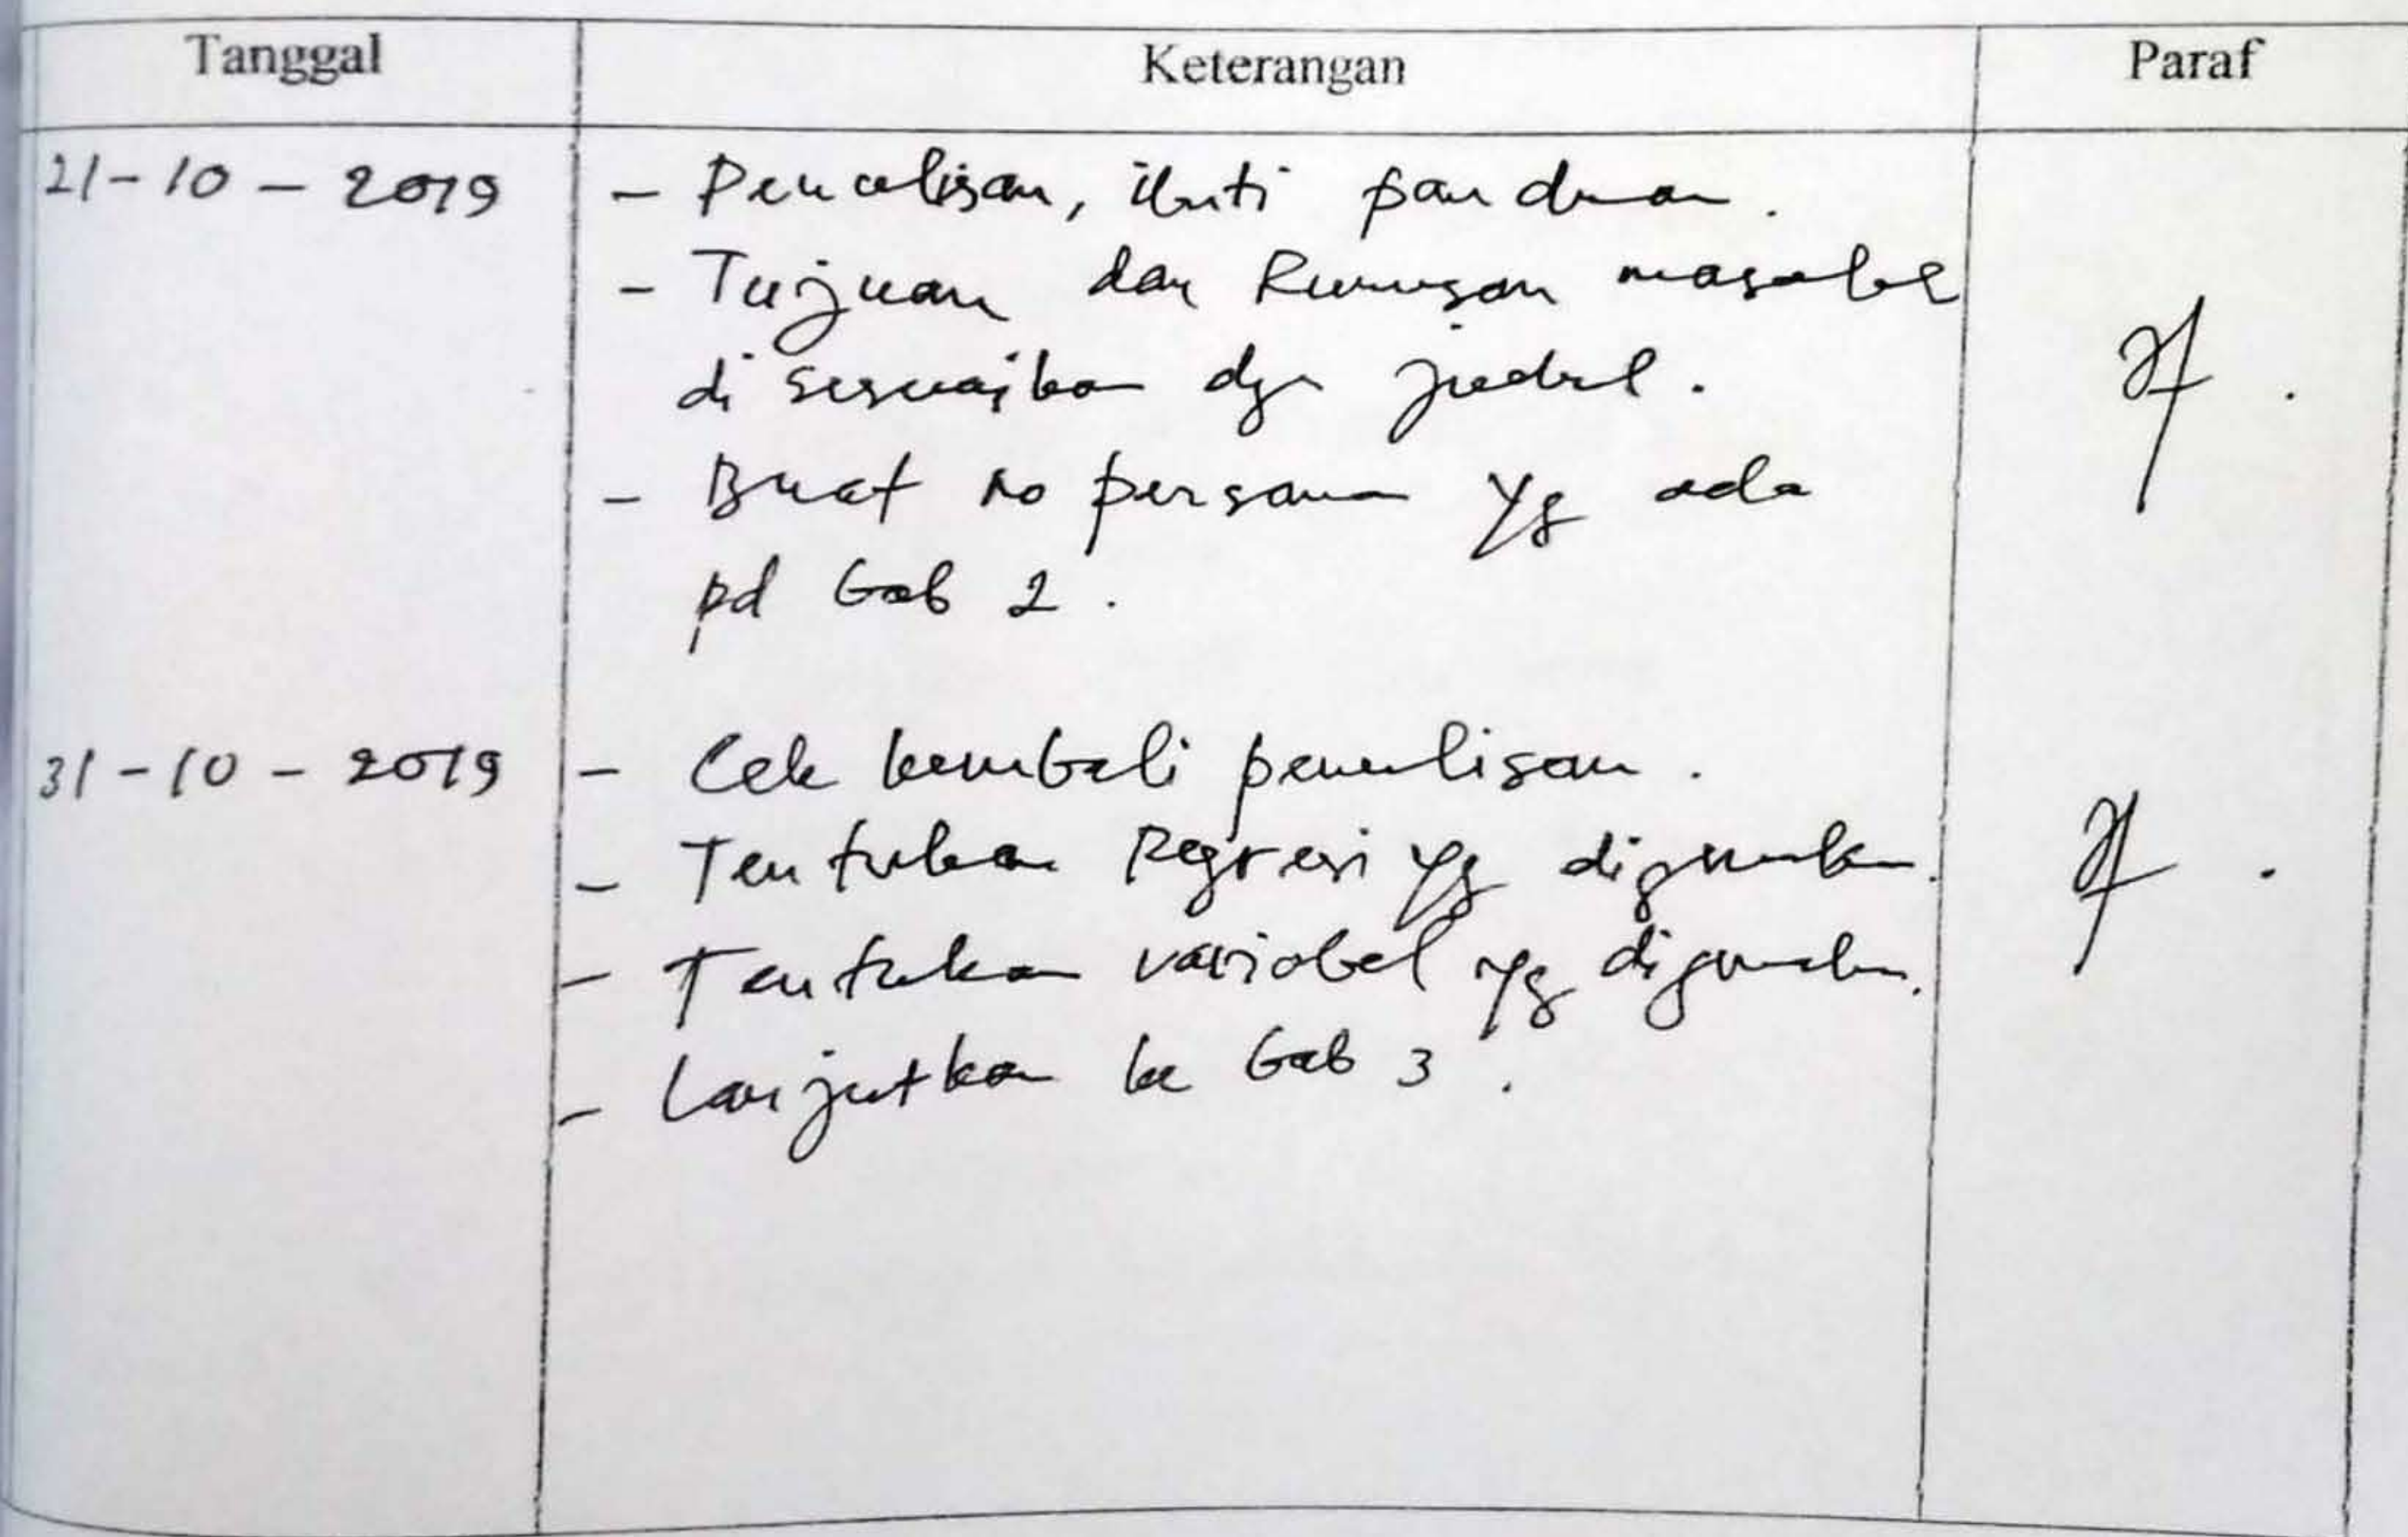 Tanggal Keterangan Paraf
21-10-2019 - Penulisan, ikuti panduan.
- Tujuan dan Rumusan masalah
disesuaikan dgn judul.
- Buat no persamaan yg ada
pd bab 2.
31-10-2019 - Cek kembali penulisan.
- Tentukan Regresi yg digunakan.
- Tentukan variabel yg digunakan.
- Lanjutkan ke bab 3.